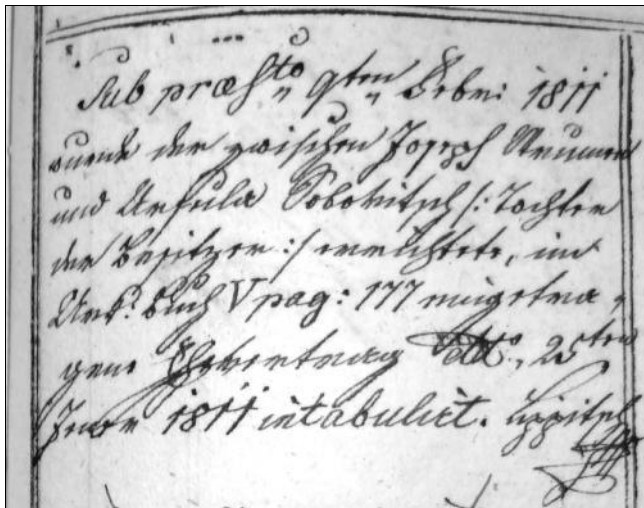 Sub praesto 9ten Xrbr: 1811
wurde der zwischen Joseph
und Ursula Sobotitsch /: Tochter
der Besitzer :/ errichtete, im
Urk: Buch V pag: 177 eingetra„
gene Ehevertrag ddo. 25ten
1811 intabulirt.